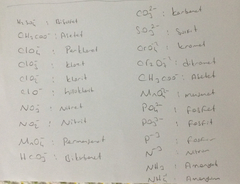 HSO₄⁻ : Bisülfat
CH₃COO⁻ : Asetat
ClO₄⁻ : Perklorat
ClO₃⁻ : Klorat
ClO₂⁻ : Klorit
ClO⁻ : hipoklorit
NO₃⁻ : Nitrat
NO₂⁻ : Nitrit
MnO₄⁻ : Permanganat
HCO₃⁻ : Bikarbonat
CO₃²⁻ : karbonat
SO₃²⁻ : Sülfit
CrO₄²⁻ : kromat
Cr₂O₇²⁻ : dikromat
CH₃COO⁻ : Asetat
MnO₄²⁻ : manganat
PO₄³⁻ : Fosfat
PO₃³⁻ : Fosfit
P⁻³ : Fosfür
N⁻³ : Nitrür
NH₃ : Amonyak
NH₄⁺ : Amonyum